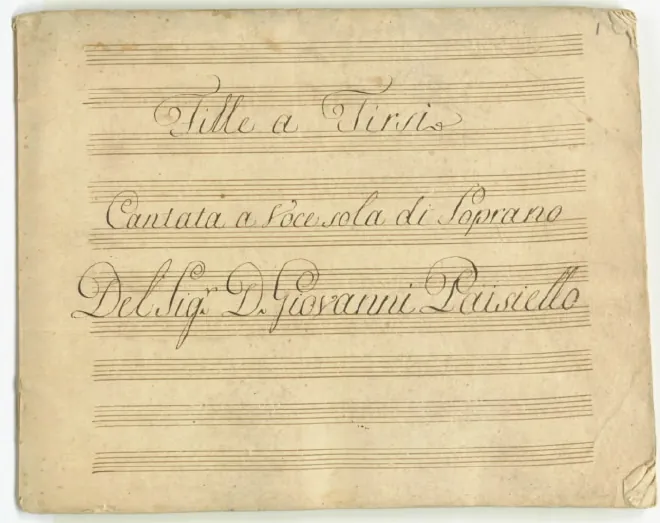 Fille a Tirsi
Cantata a Voce sola di Soprano
Del Sig.r D. Giovanni Paisiello